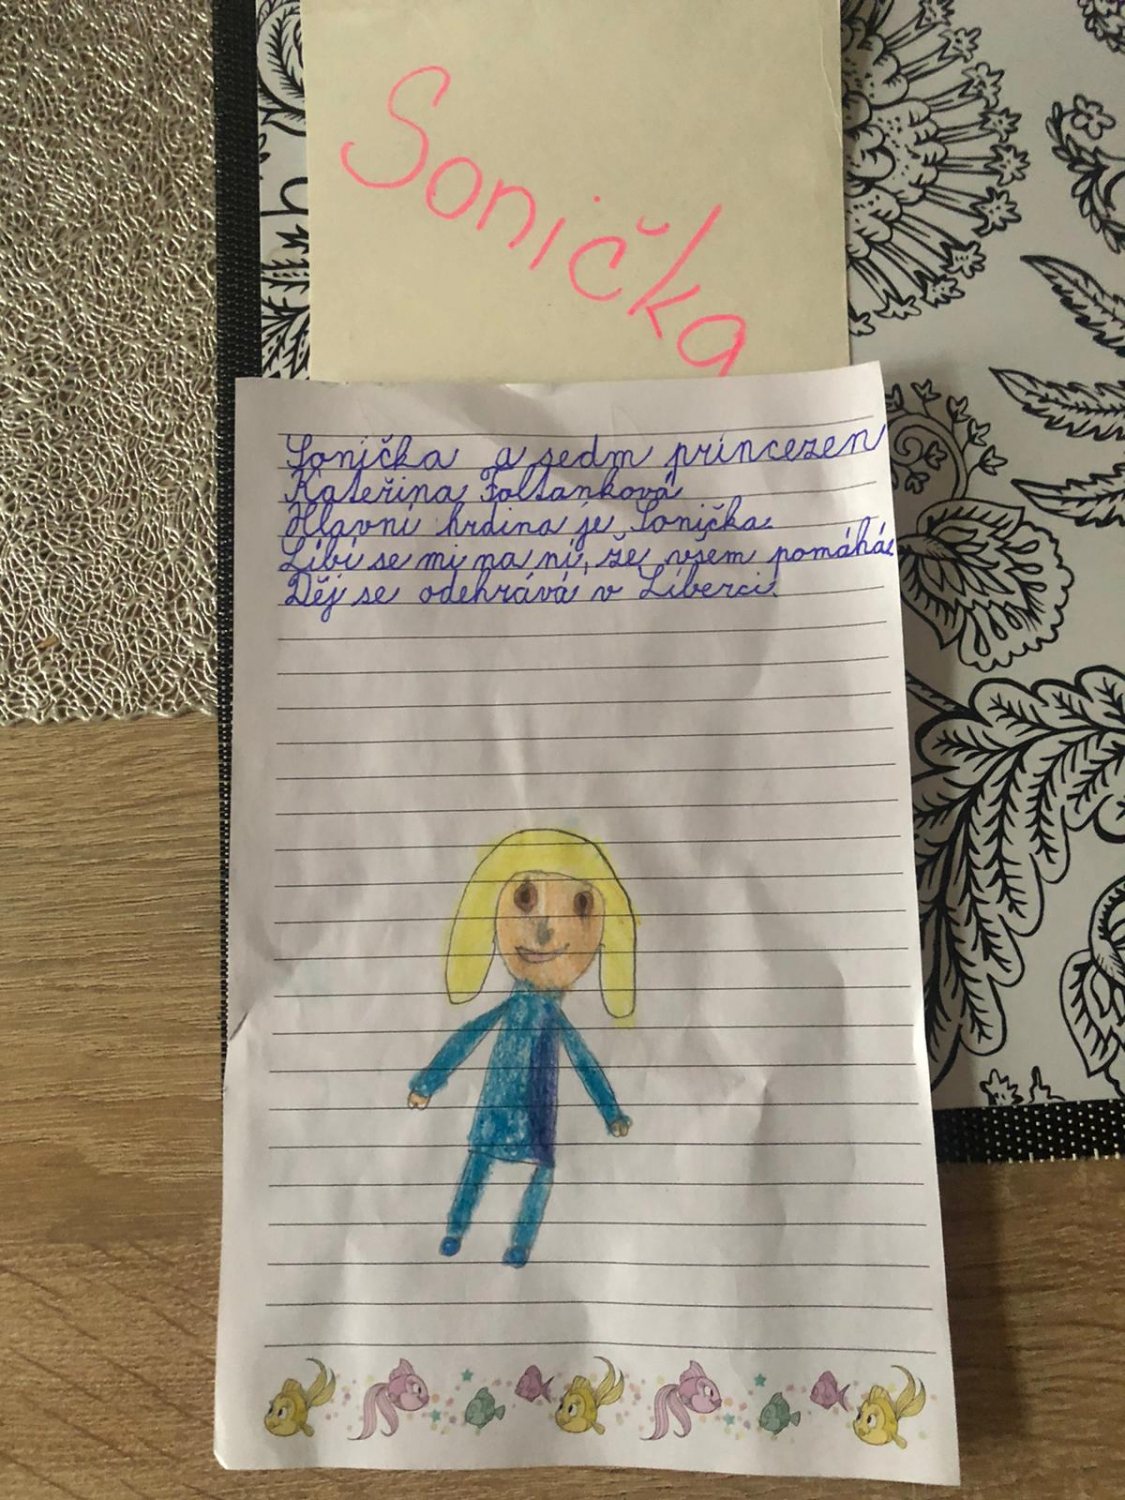 Sonička
Sonička a sedm princezen
Kateřina Foltanková
Hlavní hrdina je Sonička.
Líbí se mi na ní, že všem pomáhá.
Děj se odehrává v Liberci.